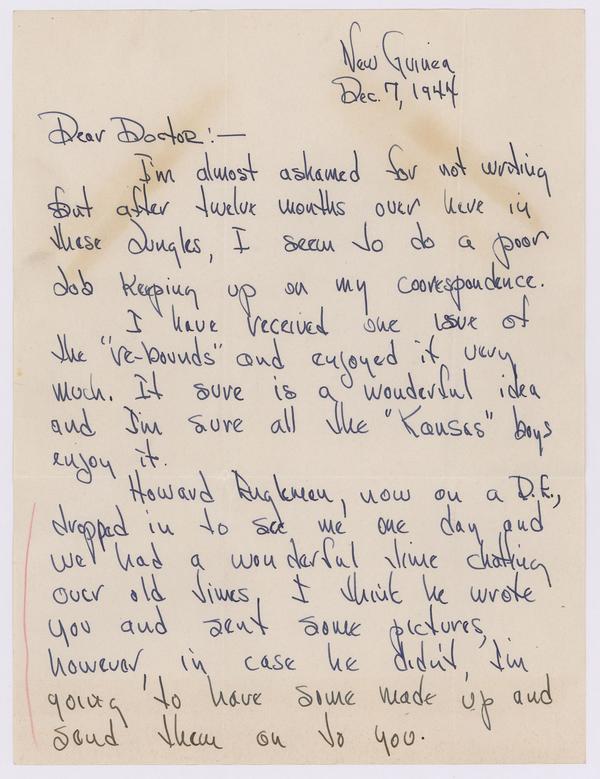 New Guinea
Dec. 7, 1944
Dear Doctor:—
I'm almost ashamed for not writing
but after twelve months over here in
these Jungles, I seem to do a poor
Job keeping up on my coorespondence.
I have received one issue of
the "re-bounds" and enjoyed it very
much. It sure is a wonderful idea
and I'm sure all the "Kansas" boys
enjoy it.
Howard Engleman, now on a D.E.,
dropped in to see me one day and
we had a wonderful time chatting
over old times, I think he wrote
you and sent some pictures,
however, in case he didn't, I'm
going to have some made up and
send them on to you.